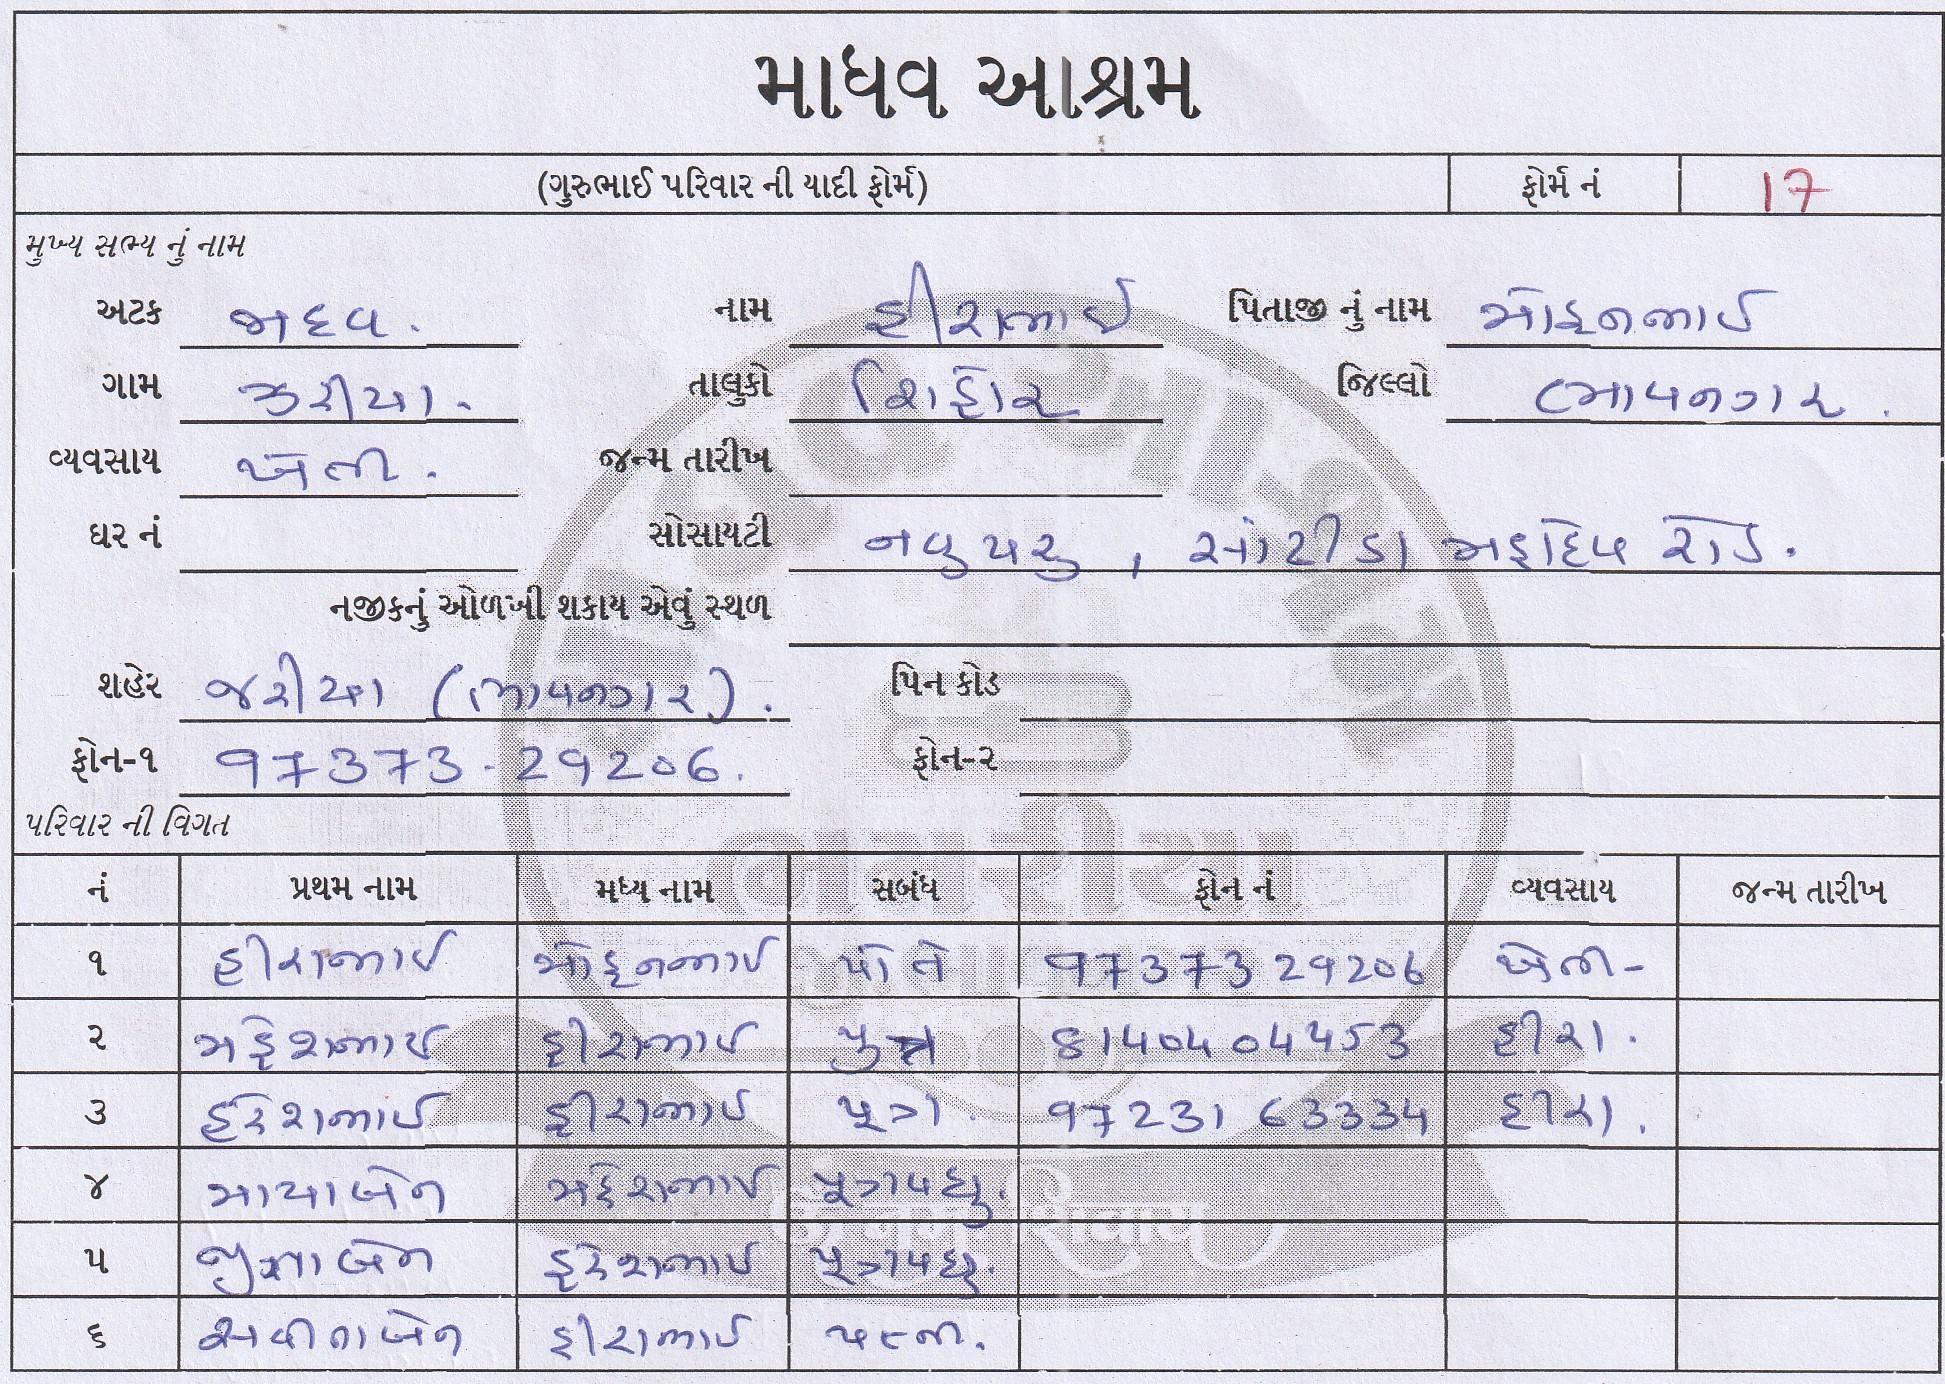 માધવ આશ્રમ
(ગુરુભાઈ પરિવાર ની યાદી ફોર્મ) ફોર્મ નં 17
મુખ્ય સભ્ય નું નામ
અટક જાદવ. નામ હીરાભાઈ પિતાજી નું નામ મોહનભાઈ
ગામ ઝરીયા. તાલુકો શિહોર જિલ્લો ભાવનગર.
વ્યવસાય ખેતી. જન્મ તારીખ
ઘર નં સોસાયટી નવુ પરુ, સાંટીડા મહાદેવ રોડ.
નજીકનું ઓળખી શકાય એવું સ્થળ
શહેર જરીયા (ભાવનગર). પિન કોડ
ફોન-૧ 97373-29206. ફોન-૨
પરિવાર ની વિગત
નં પ્રથમ નામ મધ્ય નામ સબંધ ફોન નં વ્યવસાય જન્મ તારીખ
૧ હીરાભાઈ મોહનભાઈ પોતે 97373 29206 ખેતી-
૨ મહેશભાઈ હીરાભાઈ પુત્ર 81404 04453 હીરા.
૩ હરેશભાઈ હીરાભાઈ પુત્ર. 97231 63334 હીરા.
૪ માયાબેન મહેશભાઈ પુત્રવધુ.
૫ હરેશભાઈ પુત્રવધુ.
૬ સવીતાબેન હીરાભાઈ પત્ની.